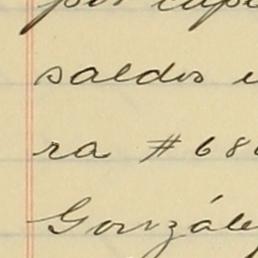 por cap
saldos
ra # 68
Gonzále